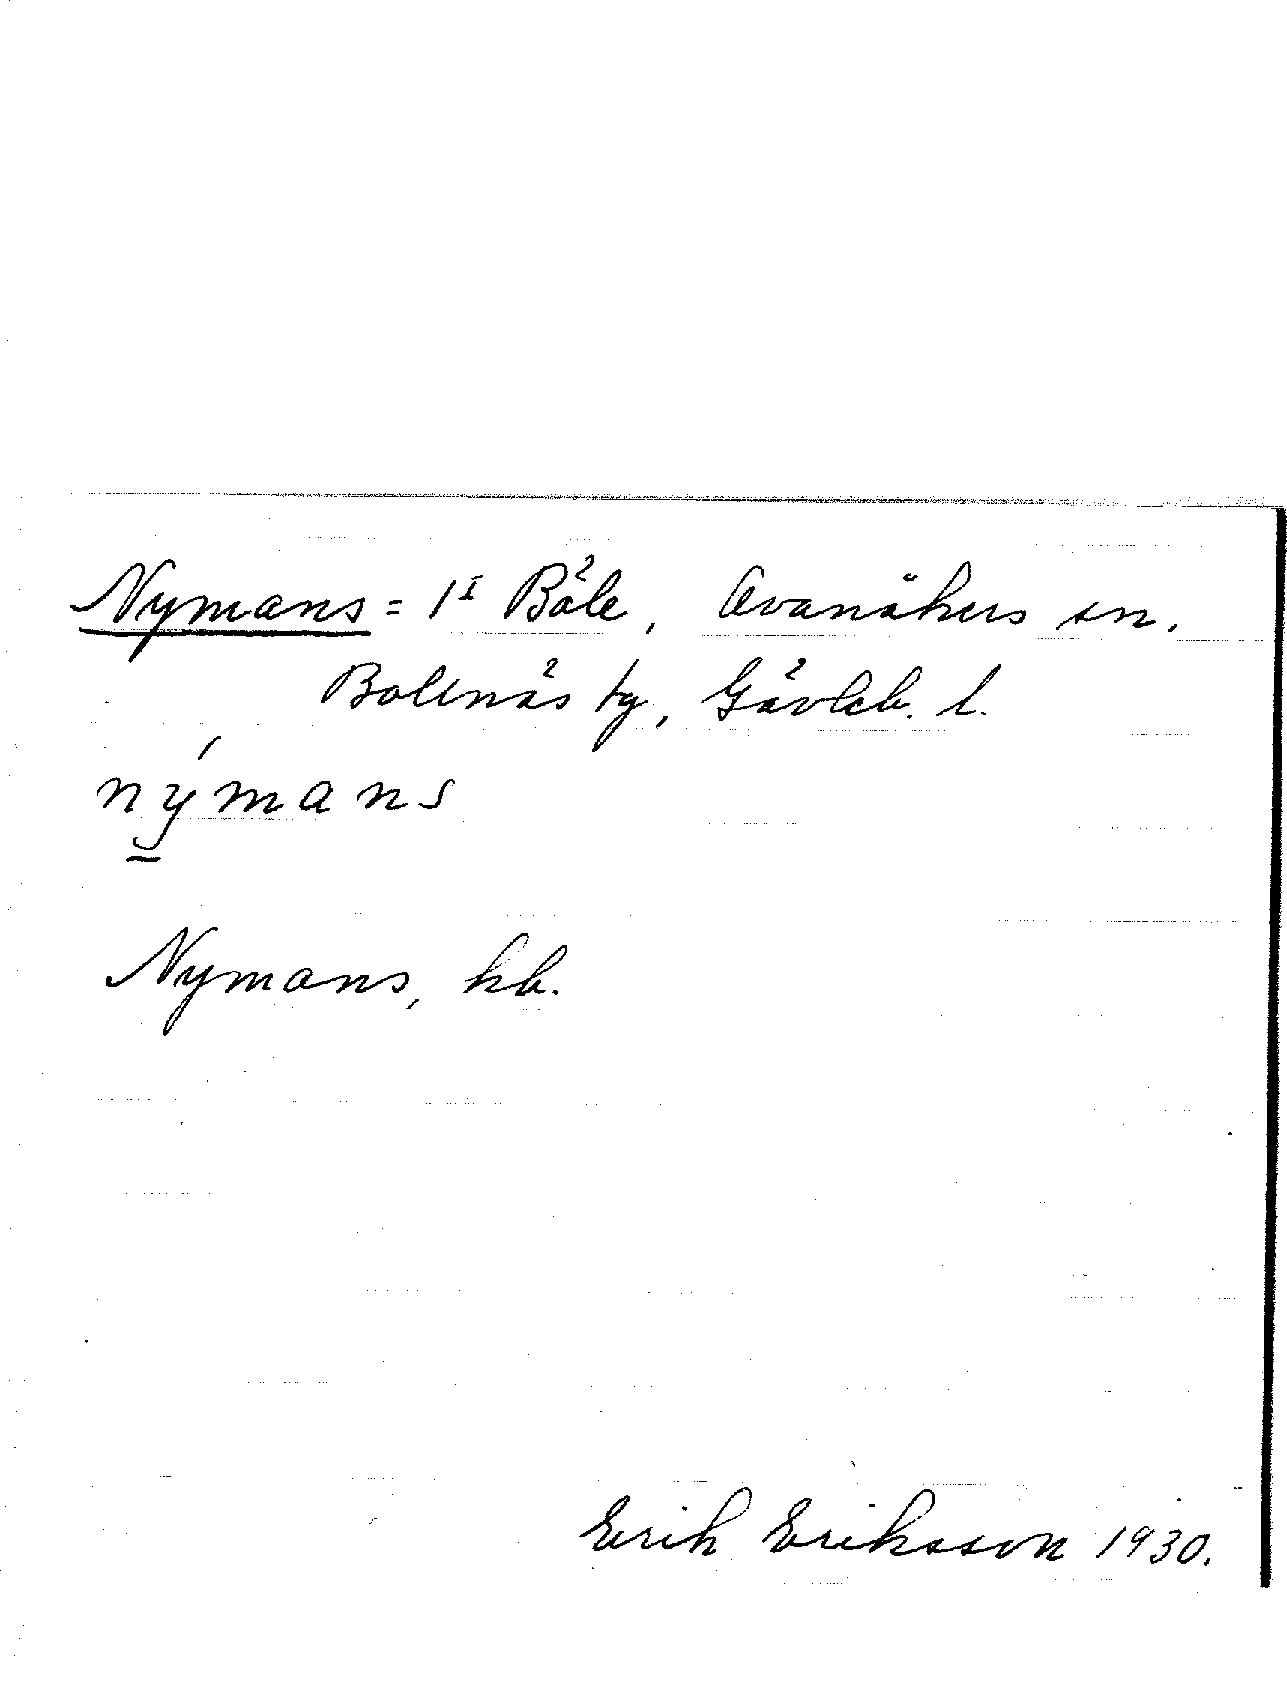 Nymans = 1ᴵ Böle, Ovanåkers sn.
Bollnäs tg, Gävleb. l.
nýmans
Nymans, kb.
Erik Eriksson 1930.